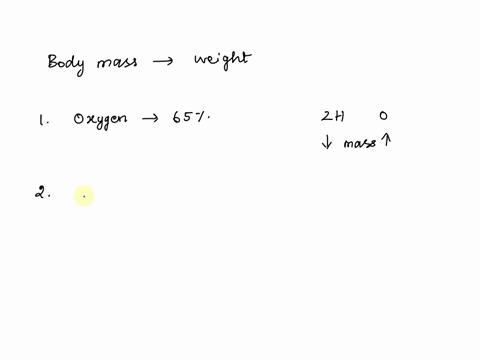 Body mass → weight
1. Oxygen → 65%. 2H O
↓ mass ↑
2.